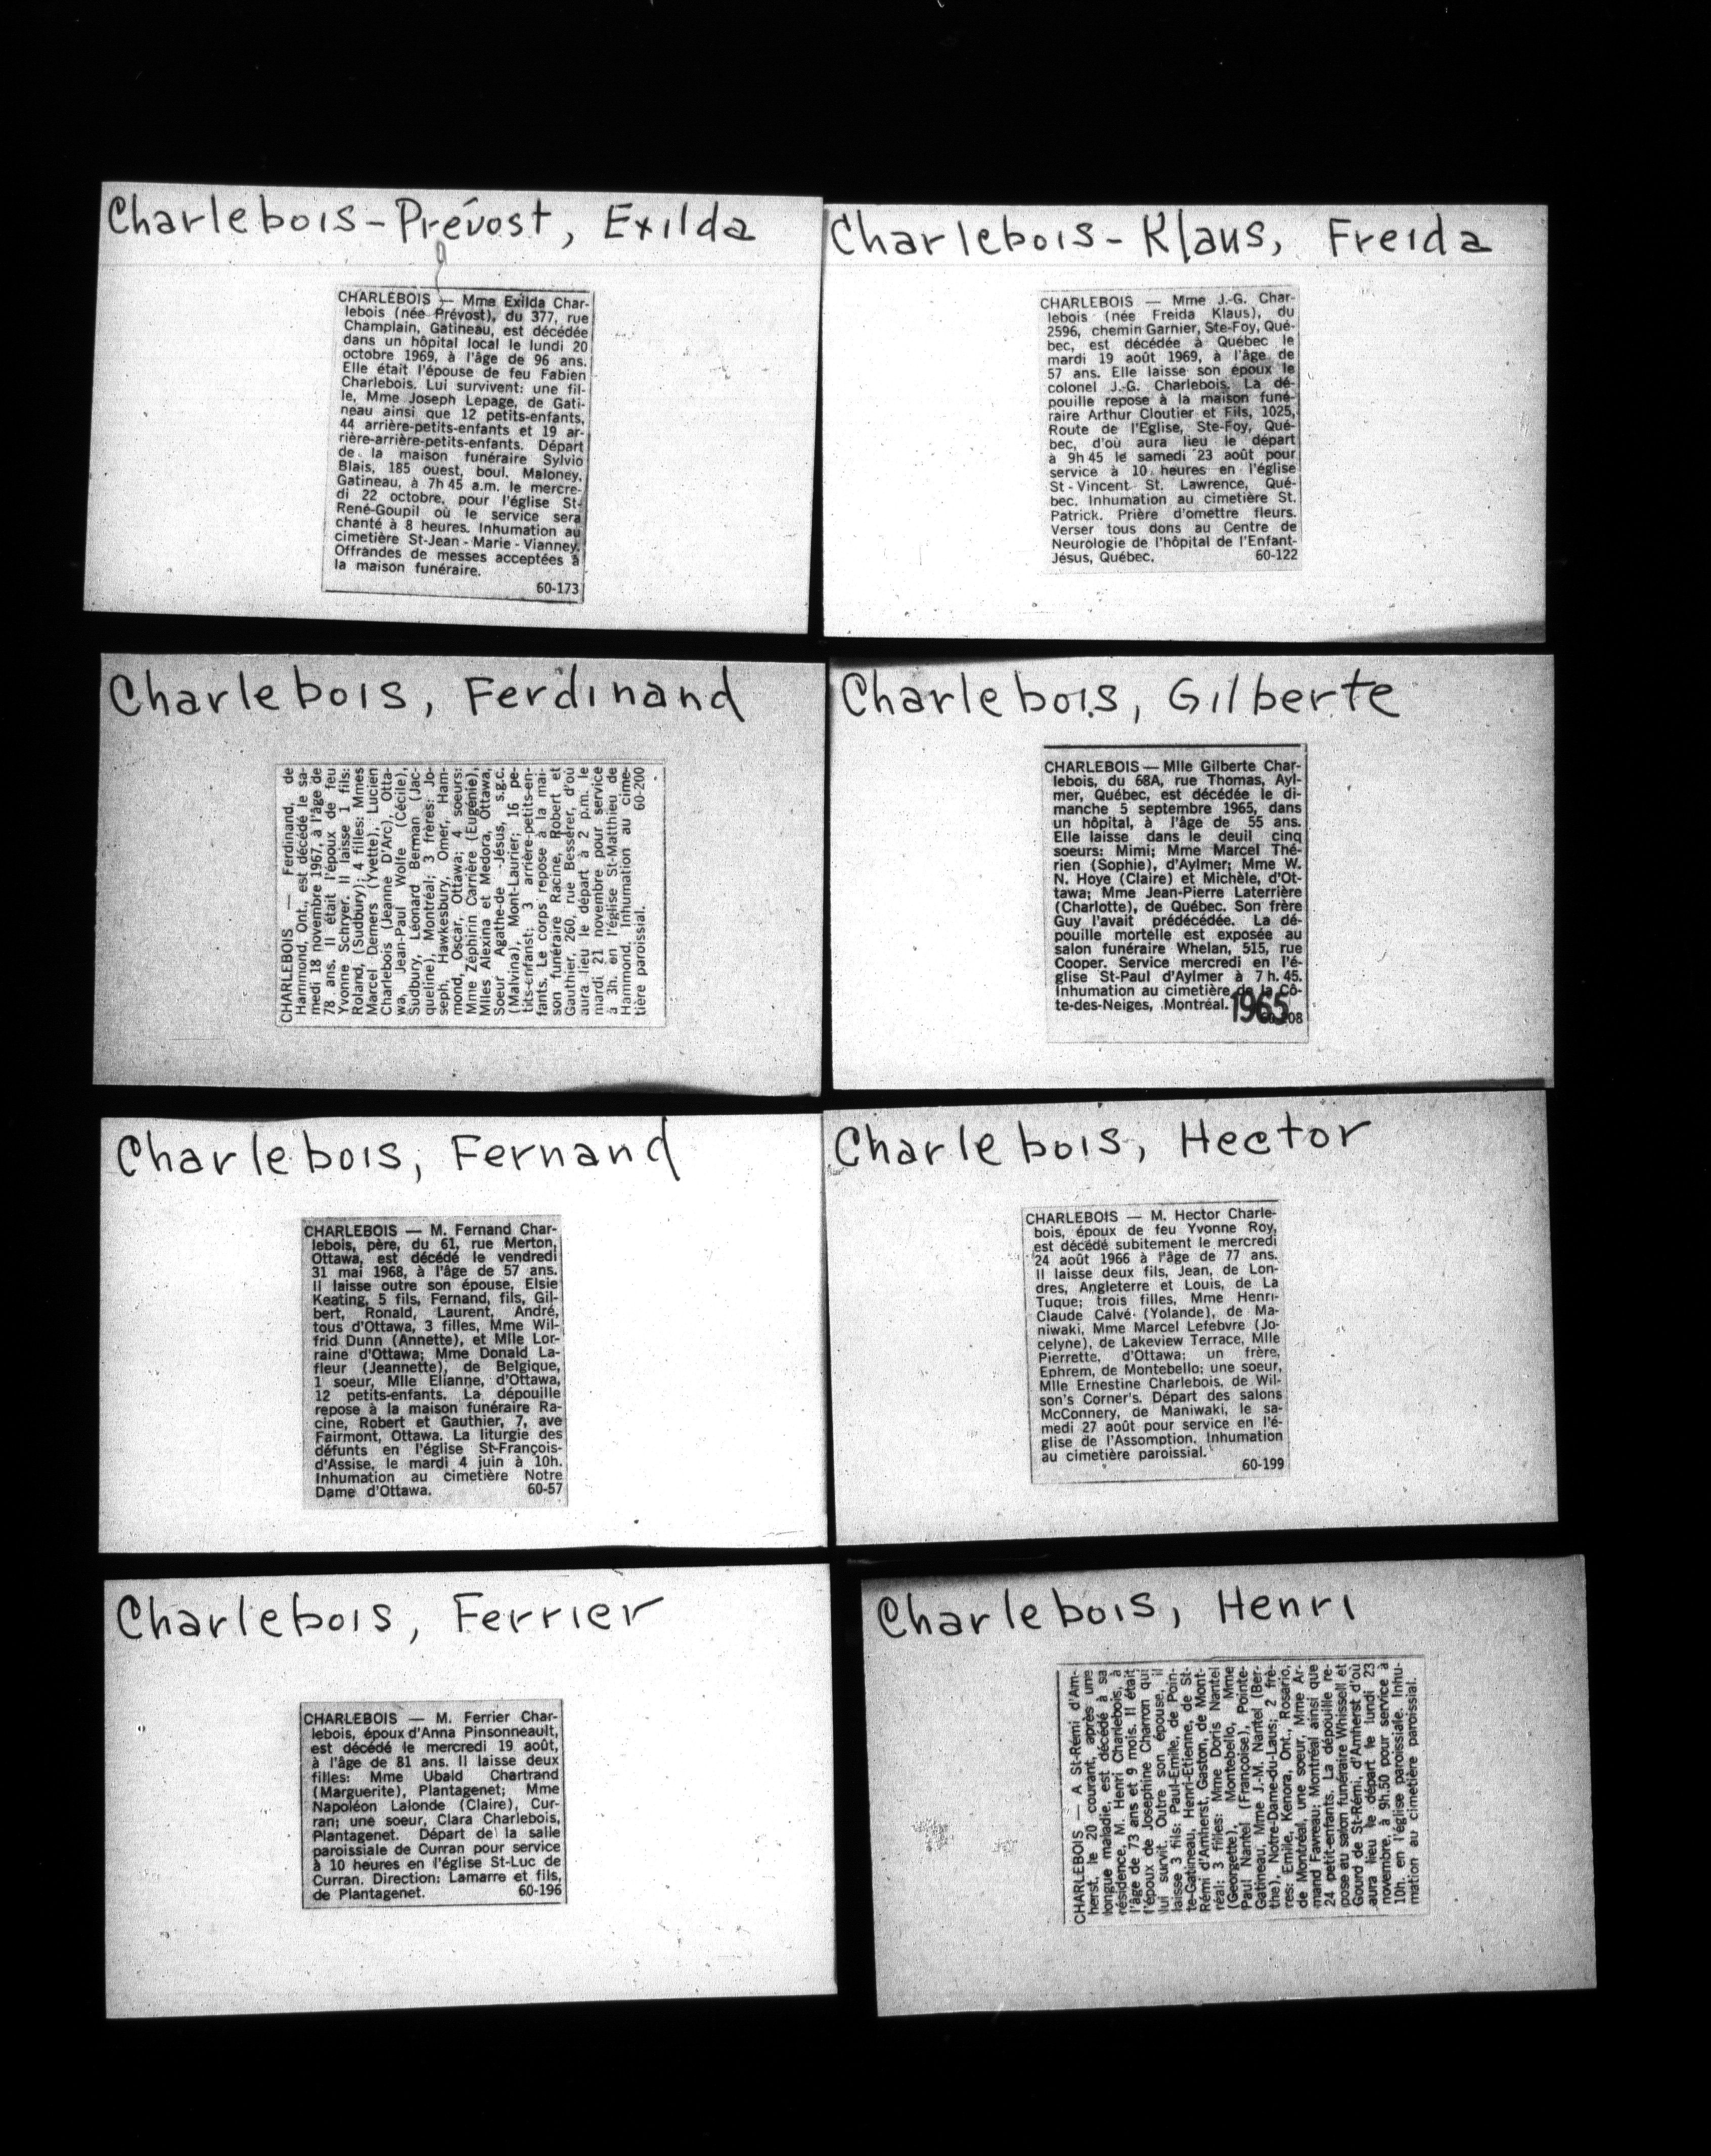 Charlebois-Prévost, Exilda
CHARLEBOIS — Mme Exilda Char-
lebois (née Prévost), du 377, rue
Champlain, Gatineau, est décédée
dans un hôpital local le lundi 20
octobre 1969, à l'âge de 96 ans.
Elle était l'épouse de feu Fabien
Charlebois. Lui survivent: une fil-
le, Mme Joseph Lepage, de Gati-
neau ainsi que 12 petits-enfants,
44 arrière-petits-enfants et 19 ar-
rière-arrière-petits-enfants. Départ
de la maison funéraire Sylvio
Blais, 185 ouest, boul. Maloney,
Gatineau, à 7h 45 a.m. le mercre-
di 22 octobre, pour l'église St-
René-Goupil où le service sera
chanté à 8 heures. Inhumation au
cimetière St-Jean-Marie-Vianney.
Offrandes de messes acceptées à
la maison funéraire.
60-173
Charlebois-Klaus, Freida
CHARLEBOIS — Mme J.-G. Char-
lebois (née Freida Klaus), du
2596, chemin Garnier, Ste-Foy, Qué-
bec, est décédée à Québec le
mardi 19 août 1969, à l'âge de
57 ans. Elle laisse son époux le
colonel J.-G. Charlebois. La dé-
pouille repose à la maison funé-
raire Arthur Cloutier et Fils, 1025,
Route de l'Eglise, Ste-Foy, Qué-
bec, d'où aura lieu le départ
à 9h 45 le samedi 23 août pour
service à 10 heures en l'église
St-Vincent St. Lawrence, Qué-
bec. Inhumation au cimetière St.
Patrick. Prière d'omettre fleurs.
Verser tous dons au Centre de
Neurologie de l'hôpital de l'Enfant-
Jésus, Québec. 60-122
Charlebois, Ferdinand
CHARLEBOIS — Ferdinand, de
Hammond, Ont., est décédé le sa-
medi 18 novembre 1967, à l'âge de
78 ans. Il était l'époux de feu
Yvonne Schryer. Il laisse 1 fils:
Roland, (Sudbury); 4 filles: Mmes
Marcel Demers (Yvette), Lucien
Charlebois (Jeanne D'Arc), Otta-
wa, Jean-Paul Wolfe (Cécile),
Sudbury, Léonard Berman (Jac-
queline), Montréal; 3 frères: Jo-
seph, Hawkesbury, Omer, Ham-
mond, Oscar, Ottawa; 4 soeurs:
Mme Zéphirin Carrière (Eugénie),
Mlles Alexina et Medora, Ottawa,
Soeur Agathe-de -Jésus, s.g.c.
(Malvina), Mont-Laurier; 16 pe-
tits-enfanst; 3 arrière-petits-en-
fants. Le corps repose à la mai-
son funéraire Racine, Robert et
Gauthier, 260, rue Besserer, d'où
aura lieu le départ à 2 p.m. le
mardi 21 novembre pour service
à 3h. en l'église St-Matthieu de
Hammond. Inhumation au cime-
tière paroissial. 60-200
Charlebois, Gilberte
CHARLEBOIS — Mlle Gilberte Char-
lebois, du 68A, rue Thomas, Ayl-
mer, Québec, est décédée le di-
manche 5 septembre 1965, dans
un hôpital, à l'âge de 55 ans.
Elle laisse dans le deuil cinq
soeurs: Mimi; Mme Marcel Thé-
rien (Sophie), d'Aylmer; Mme W.
N. Hoye (Claire) et Michèle, d'Ot-
tawa; Mme Jean-Pierre Laterrière
(Charlotte), de Québec. Son frère
Guy l'avait prédécédée. La dé-
pouille mortelle est exposée au
salon funéraire Whelan, 515, rue
Cooper. Service mercredi en l'é-
glise St-Paul d'Aylmer à 7 h. 45.
Inhumation au cimetière de la Cô-
te-des-Neiges, Montréal.
1965
Charlebois, Fernand
CHARLEBOIS — M. Fernand Char-
lebois, père, du 61, rue Merton,
Ottawa, est décédé le vendredi
31 mai 1968, à l'âge de 57 ans.
Il laisse outre son épouse, Elsie
Keating, 5 fils, Fernand, fils, Gil-
bert, Ronald, Laurent, André,
tous d'Ottawa, 3 filles, Mme Wil-
frid Dunn (Annette), et Mlle Lor-
raine d'Ottawa; Mme Donald La-
fleur (Jeannette), de Belgique,
1 soeur, Mlle Elianne, d'Ottawa,
12 petits-enfants. La dépouille
repose à la maison funéraire Ra-
cine, Robert et Gauthier, 7, ave
Fairmont, Ottawa. La liturgie des
défunts en l'église St-François-
d'Assise, le mardi 4 juin à 10h.
Inhumation au cimetière Notre
Dame d'Ottawa. 60-57
Charlebois, Hector
CHARLEBOIS — M. Hector Charle-
bois, époux de feu Yvonne Roy,
est décédé subitement le mercredi
24 août 1966 à l'âge de 77 ans.
Il laisse deux fils, Jean, de Lon-
dres, Angleterre et Louis, de La
Tuque; trois filles, Mme Henri-
Claude Calvé (Yolande), de Ma-
niwaki, Mme Marcel Lefebvre (Jo-
celyne), de Lakeview Terrace, Mlle
Pierrette, d'Ottawa; un frère,
Ephrem, de Montebello; une soeur,
Mlle Ernestine Charlebois, de Wil-
son's Corner's. Départ des salons
McConnery, de Maniwaki, le sa-
medi 27 août pour service en l'é-
glise de l'Assomption. Inhumation
au cimetière paroissial.
60-199
Charlebois, Ferrier
CHARLEBOIS — M. Ferrier Char-
lebois, époux d'Anna Pinsonneault,
est décédé le mercredi 19 août,
à l'âge de 81 ans. Il laisse deux
filles: Mme Ubald Chartrand
(Marguerite), Plantagenet; Mme
Napoléon Lalonde (Claire), Cur-
ran; une soeur, Clara Charlebois,
Plantagenet. Départ de la salle
paroissiale de Curran pour service
à 10 heures en l'église St-Luc de
Curran. Direction: Lamarre et fils,
de Plantagenet. 60-196
Charlebois, Henri
CHARLEBOIS — A St-Rémi d'Am-
herst, le 20 courant, après une
longue maladie, est décédé à sa
résidence, M. Henri Charlebois, à
l'âge de 73 ans et 9 mois. Il était
l'époux de Josephine Charron qui
lui survit. Outre son épouse, il
laisse 3 fils: Paul-Emile, de Poin-
te-Gatineau, Henri-Etienne, de St-
Rémi d'Amherst, Gaston, de Mont-
réal; 3 filles: Mme Doris Nantel
(Georgette), Montebello, Mme
Paul Nantel (Françoise), Pointe-
Gatineau, Mme J.-M. Nantel (Ber-
the), Notre-Dame-du-Laus; 2 frè-
res: Emile, Kenora, Ont., Rosario,
de Montréal, une soeur, Mme Ar-
mand Favreau; Montréal ainsi que
24 petit-enfants. La dépouille re-
pose au salon funéraire Whissell et
Gourd de St-Rémi, d'Amherst d'où
aura lieu, le départ le lundi 23
novembre, à 9h.50 pour service à
10h. en l'église paroissiale. Inhu-
mation au cimetière paroissial.